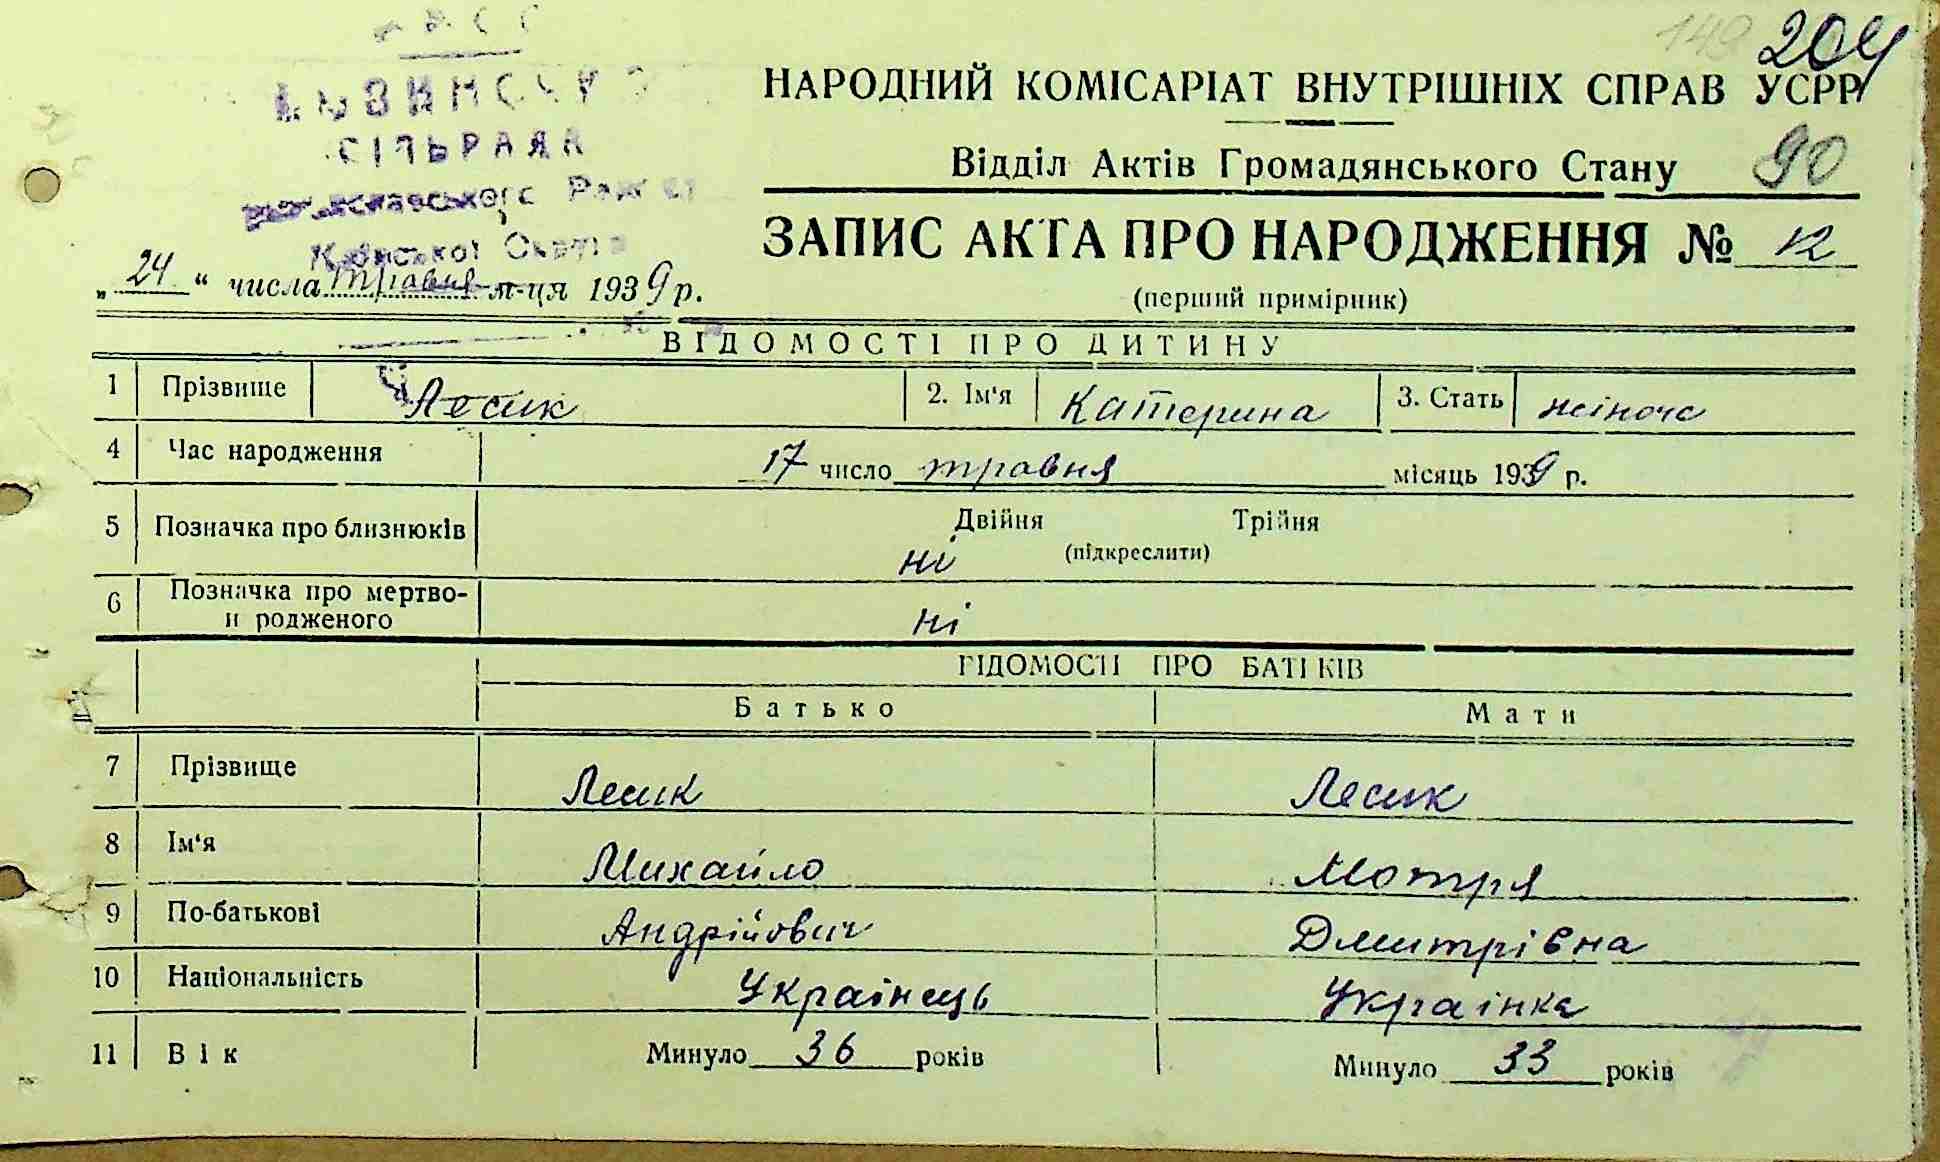 149 204
НАРОДНИЙ КОМІСАРІАТ ВНУТРІШНІХ СПРАВ УСРР
СІЛЬРАДА
Відділ Актів Громадянського Стану 90
ЗАПИС АКТА ПРО НАРОДЖЕННЯ №
(перший примірник)
„24“ числа травня м-ця 1939 р.
ВІДОМОСТІ ПРО ДИТИНУ
1 Прізвище Лесик 2. Ім'я Катерина 3. Стать жіноча
4 Час народження 17 число травня місяць 1939 р.
5 Позначка про близнюків Двійня Трійня
ні (підкреслити)
6 Позначка про мертво-
н родженого ні
ВІДОМОСТІ ПРО БАТЬКІВ
Батько Мати
7 Прізвище Лесик Лесик
8 Ім'я Михайло Мотря
9 По-батькові Андрійович Дмитрівна
10 Національність Українець Українка
11 Вік Минуло 36 років Минуло 33 років